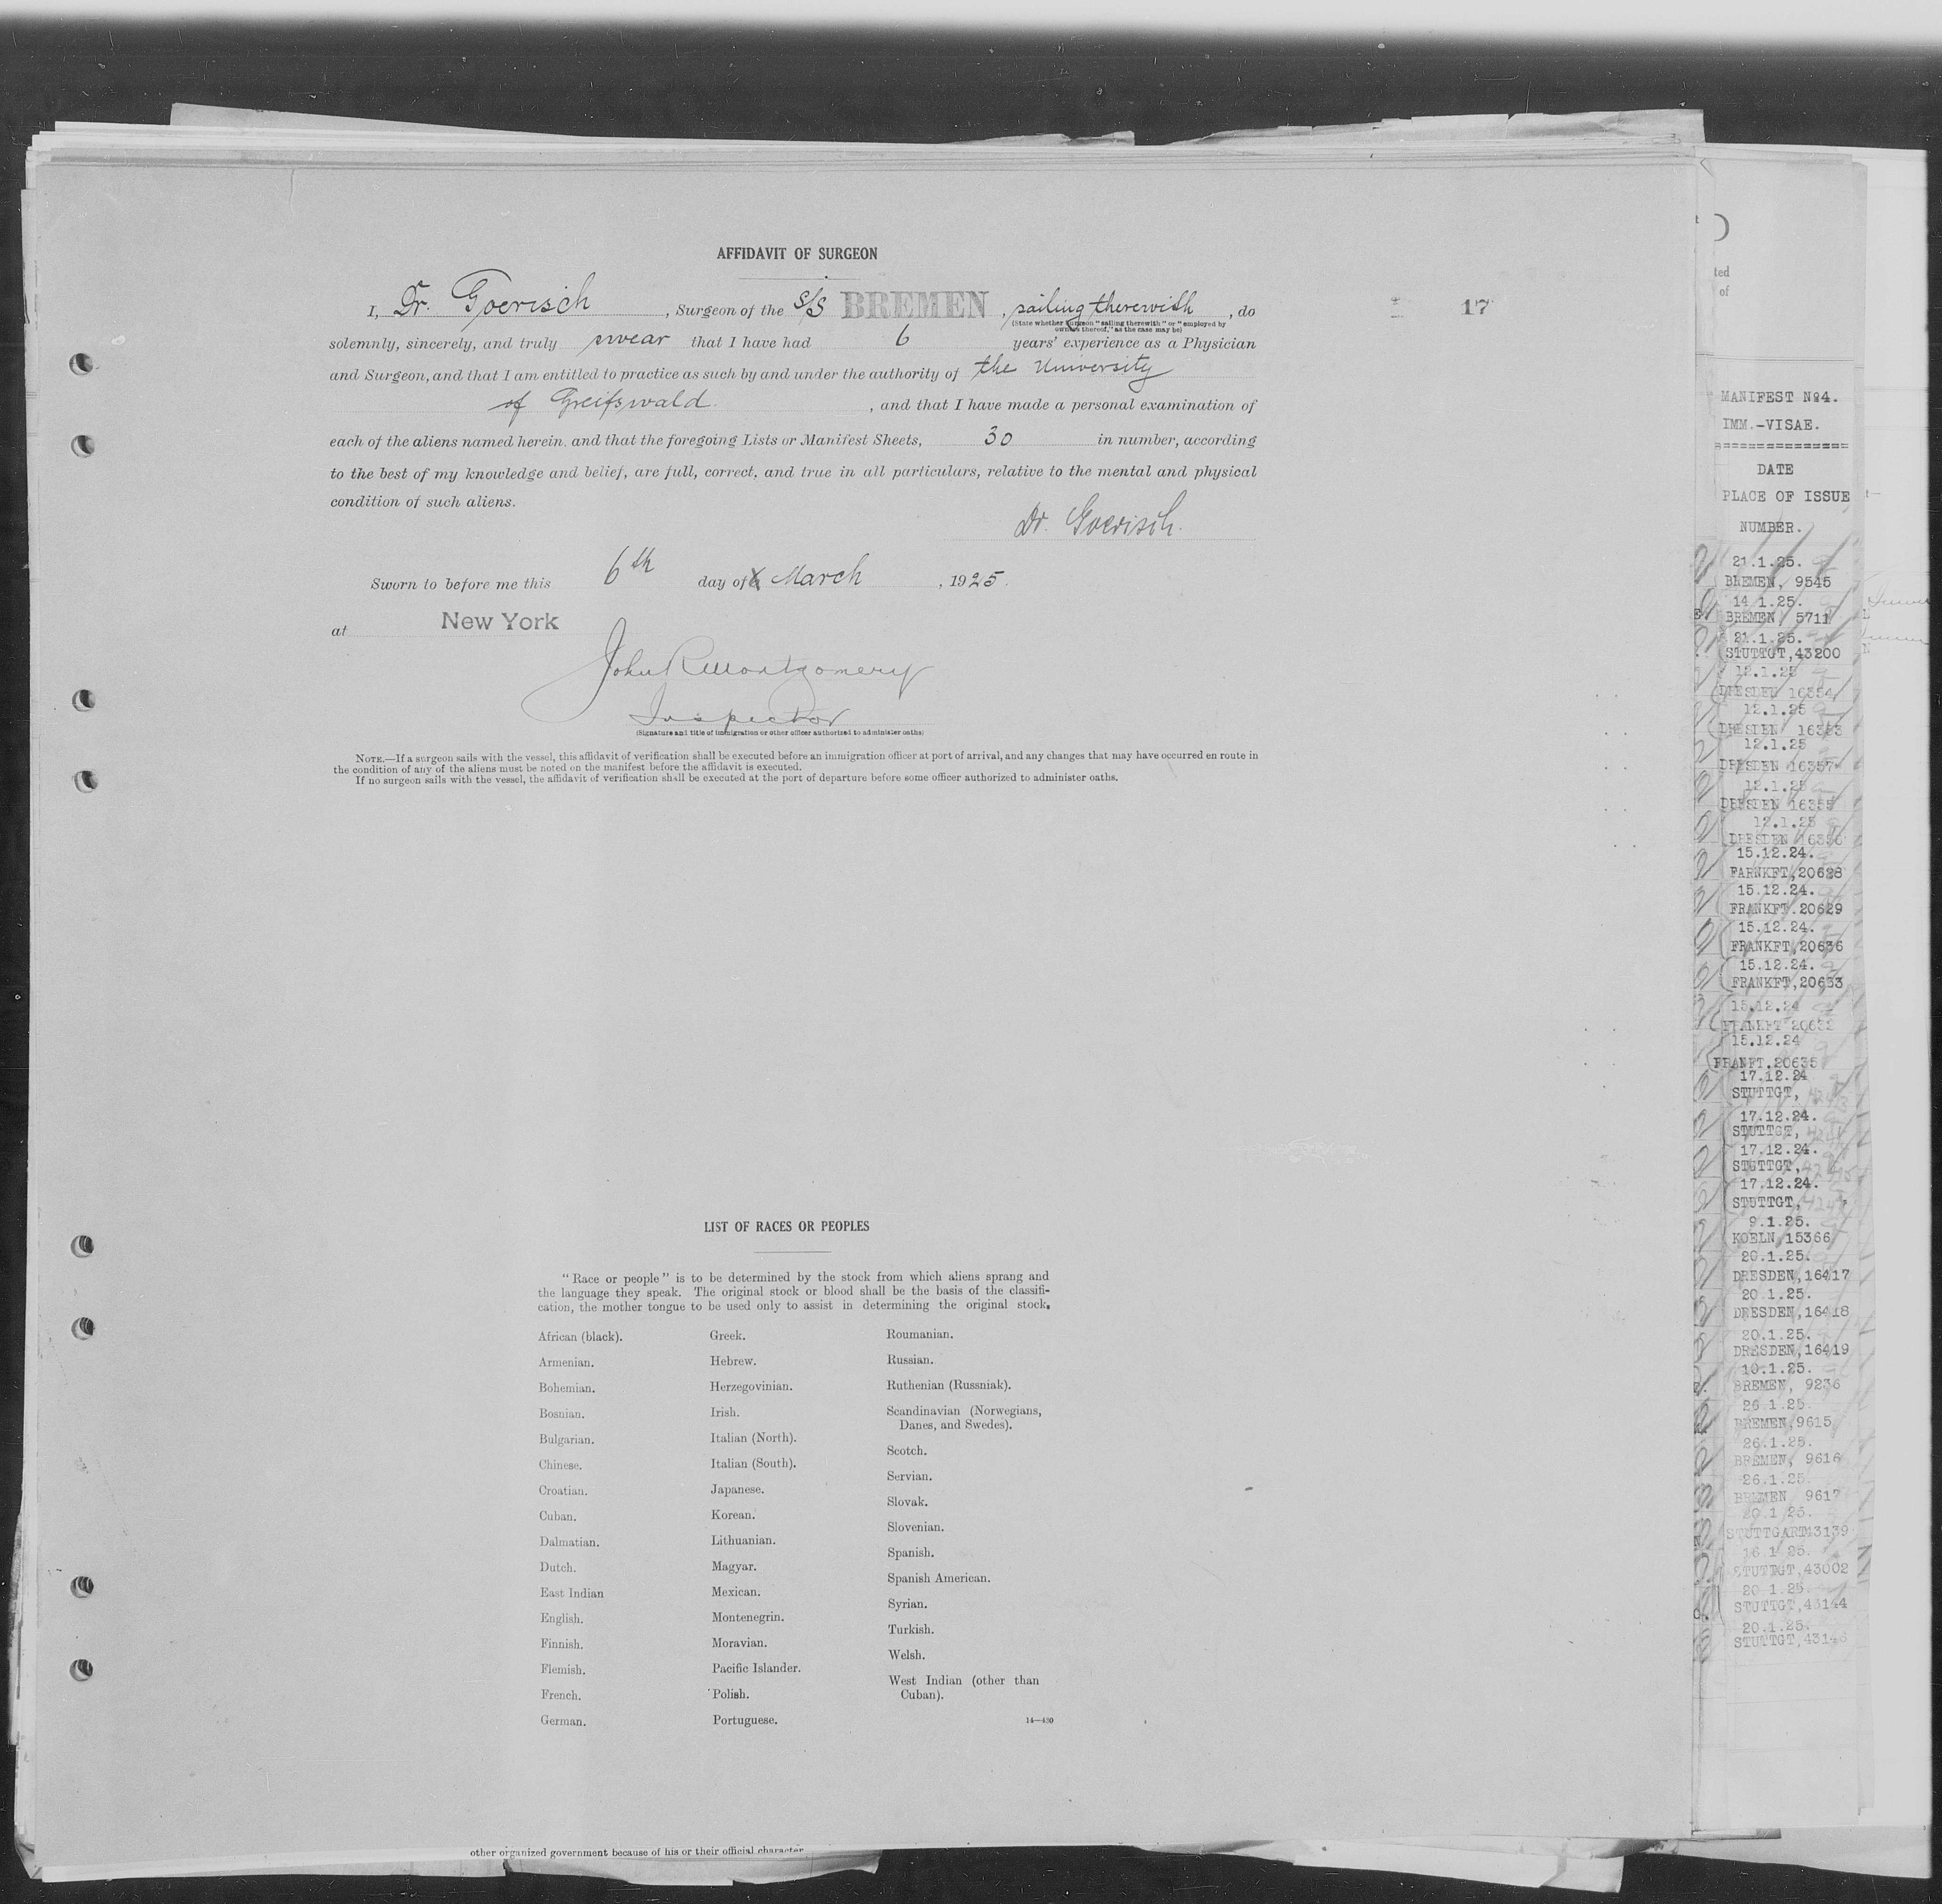 AFFIDAVIT OF SURGEON
I, Dr. Goerisch, Surgeon of the S/S BREMEN, sailing therewith, do
(State whether Surgeon "sailing therewith" or "employed by
owners thereof," as the case may be)
17
solemnly, sincerely, and truly swear that I have had 6 years' experience as a Physician
and Surgeon, and that I am entitled to practice as such by and under the authority of the University
of Greifswald, and that I have made a personal examination of
each of the aliens named herein. and that the foregoing Lists or Manifest Sheets, 30 in number, according
to the best of my knowledge and belief, are full, correct, and true in all particulars, relative to the mental and physical
condition of such aliens.
Dr. Goerisch.
Sworn to before me this 6th day of March, 1925.
at New York
John R Montgomery
Inspector
(Signature and title of immigration or other officer authorized to administer oaths)
NOTE.—If a surgeon sails with the vessel, this affidavit of verification shall be executed before an immigration officer at port of arrival, and any changes that may have occurred en route in
the condition of any of the aliens must be noted on the manifest before the affidavit is executed.
If no surgeon sails with the vessel, the affidavit of verification shall be executed at the port of departure before some officer authorized to administer oaths.
LIST OF RACES OR PEOPLES
"Race or people" is to be determined by the stock from which aliens sprang and
the language they speak. The original stock or blood shall be the basis of the classifi-
cation, the mother tongue to be used only to assist in determining the original stock.
African (black).
Armenian.
Bohemian.
Bosnian.
Bulgarian.
Chinese.
Croatian.
Cuban.
Dalmatian.
Dutch.
East Indian
English.
Finnish.
Flemish.
French.
German.
Greek.
Hebrew.
Herzegovinian.
Irish.
Italian (North).
Italian (South).
Japanese.
Korean.
Lithuanian.
Magyar.
Mexican.
Montenegrin.
Moravian.
Pacific Islander.
Polish.
Portuguese.
Roumanian.
Russian.
Ruthenian (Russniak).
Scandinavian (Norwegians,
Danes, and Swedes).
Scotch.
Servian.
Slovak.
Slovenian.
Spanish.
Spanish American.
Syrian.
Turkish.
Welsh.
West Indian (other than
Cuban).
14—430
other organized government because of his or their official character
ted
of
MANIFEST No4.
IMM.-VISAE.
==============
DATE
PLACE OF ISSUE
NUMBER.
21.1.25.
BREMEN, 9545
14.1.25.
BREMEN, 5711
21.1.25.
STUTTGT,43200
12.1.25
DRESDEN 16354
12.1.25
DRESDEN 16353
12.1.25
DRESDEN 16357
12.1.25
DRESDEN 16355
12.1.25
DRESDEN 16356
15.12.24.
FARNKFT,20628
15.12.24.
FRANKFT.20629
15.12.24.
FRANKFT,20636
15.12.24.
FRANKFT,20633
15.12.24
FRANKFT 20632
15.12.24
FRANFT.20635
17.12.24
STUTTGT,
17.12.24.
STUTTGT,
17.12.24.
STUTTGT,
17.12.24.
STUTTGT,
9.1.25.
KOELN,15366
20.1.25.
DRESDEN,16417
20.1.25.
DRESDEN,16418
20.1.25.
DRESDEN,16419
10.1.25.
BREMEN, 9236
26.1.25.
BREMEN,9615
26.1.25.
BREMEN, 9616
26.1.25.
BREMEN 9617
20.1.25.
STUTTGART43139
16.1.25.
STUTTGT,43002
20.1.25.
STUTTGT,43144
20.1.25.
STUTTGT,